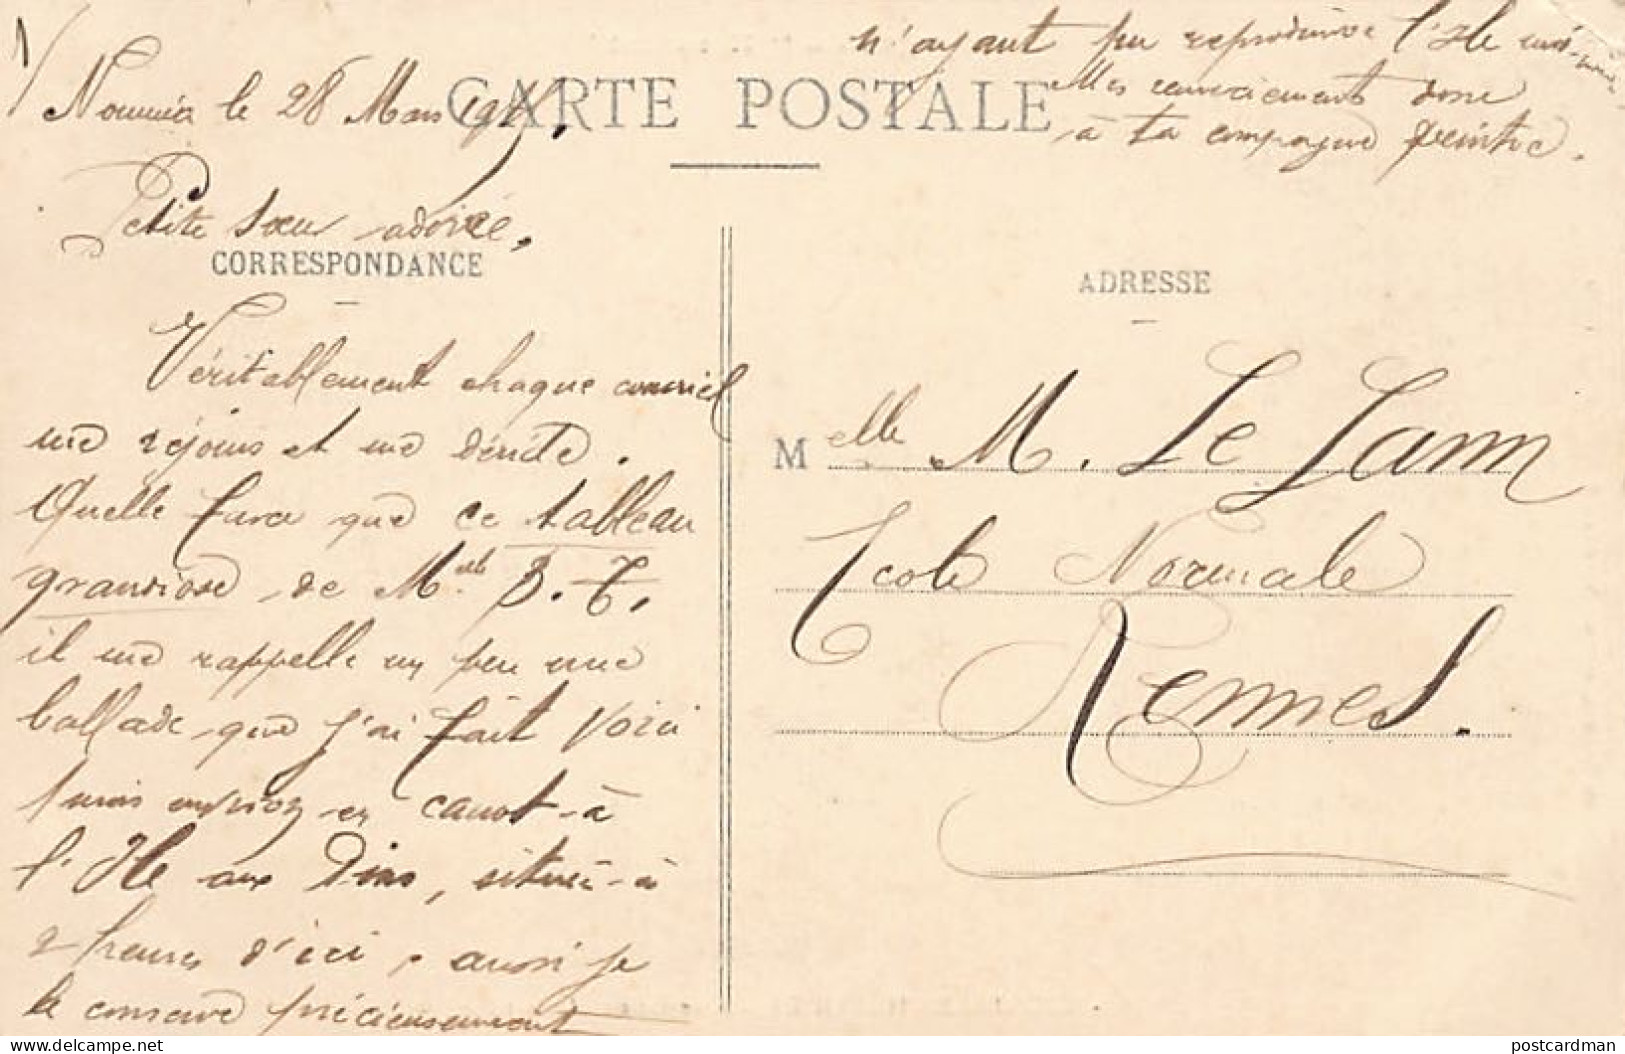 1/
Nouméa le 28 Mars
CARTE POSTALE
Petite sœur adorée,
CORRESPONDANCE
Véritablement chaque courriel
me réjouis et me déride.
Quelle furia que ce tableau
grandiose de Melle B. T.
il me rappelle un peu une
ballade que j'ai fait voici
1 mois environ en canot à
l'Ile aux Pins, située à
2 heures d'ici, aussi je
le conserve précieusement
n'ayant pu reproduire l'Ile moi-même
Mes remerciements donc
à ta compagne peintre.
ADRESSE
Melle M. Le Lann
Ecole Normale
Rennes.
postcardman
www.delcampe.net